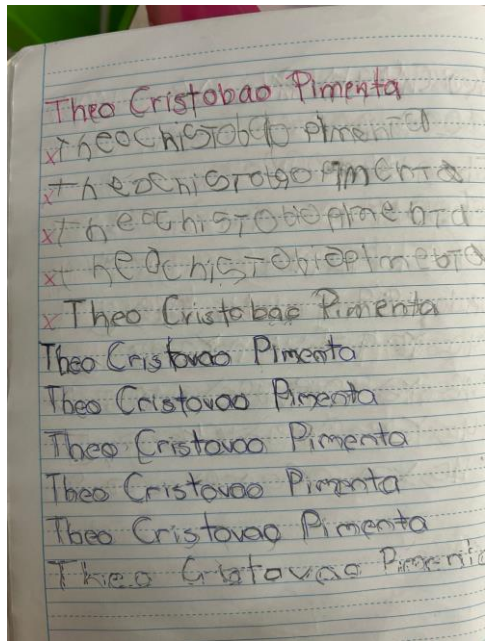 Theo Cristobao Pimenta
x theochistobao pimenta
x theochistobao pimenta
x theochistobao pimenta
x theochistobiopimebta
x Theo Cristobao Pimenta
Theo Cristovao Pimenta
Theo Cristovao Pimenta
Theo Cristovao Pimenta
Theo Cristovao Pimenta
Theo Cristovao Pimenta
Theo Cristovao Pimenta